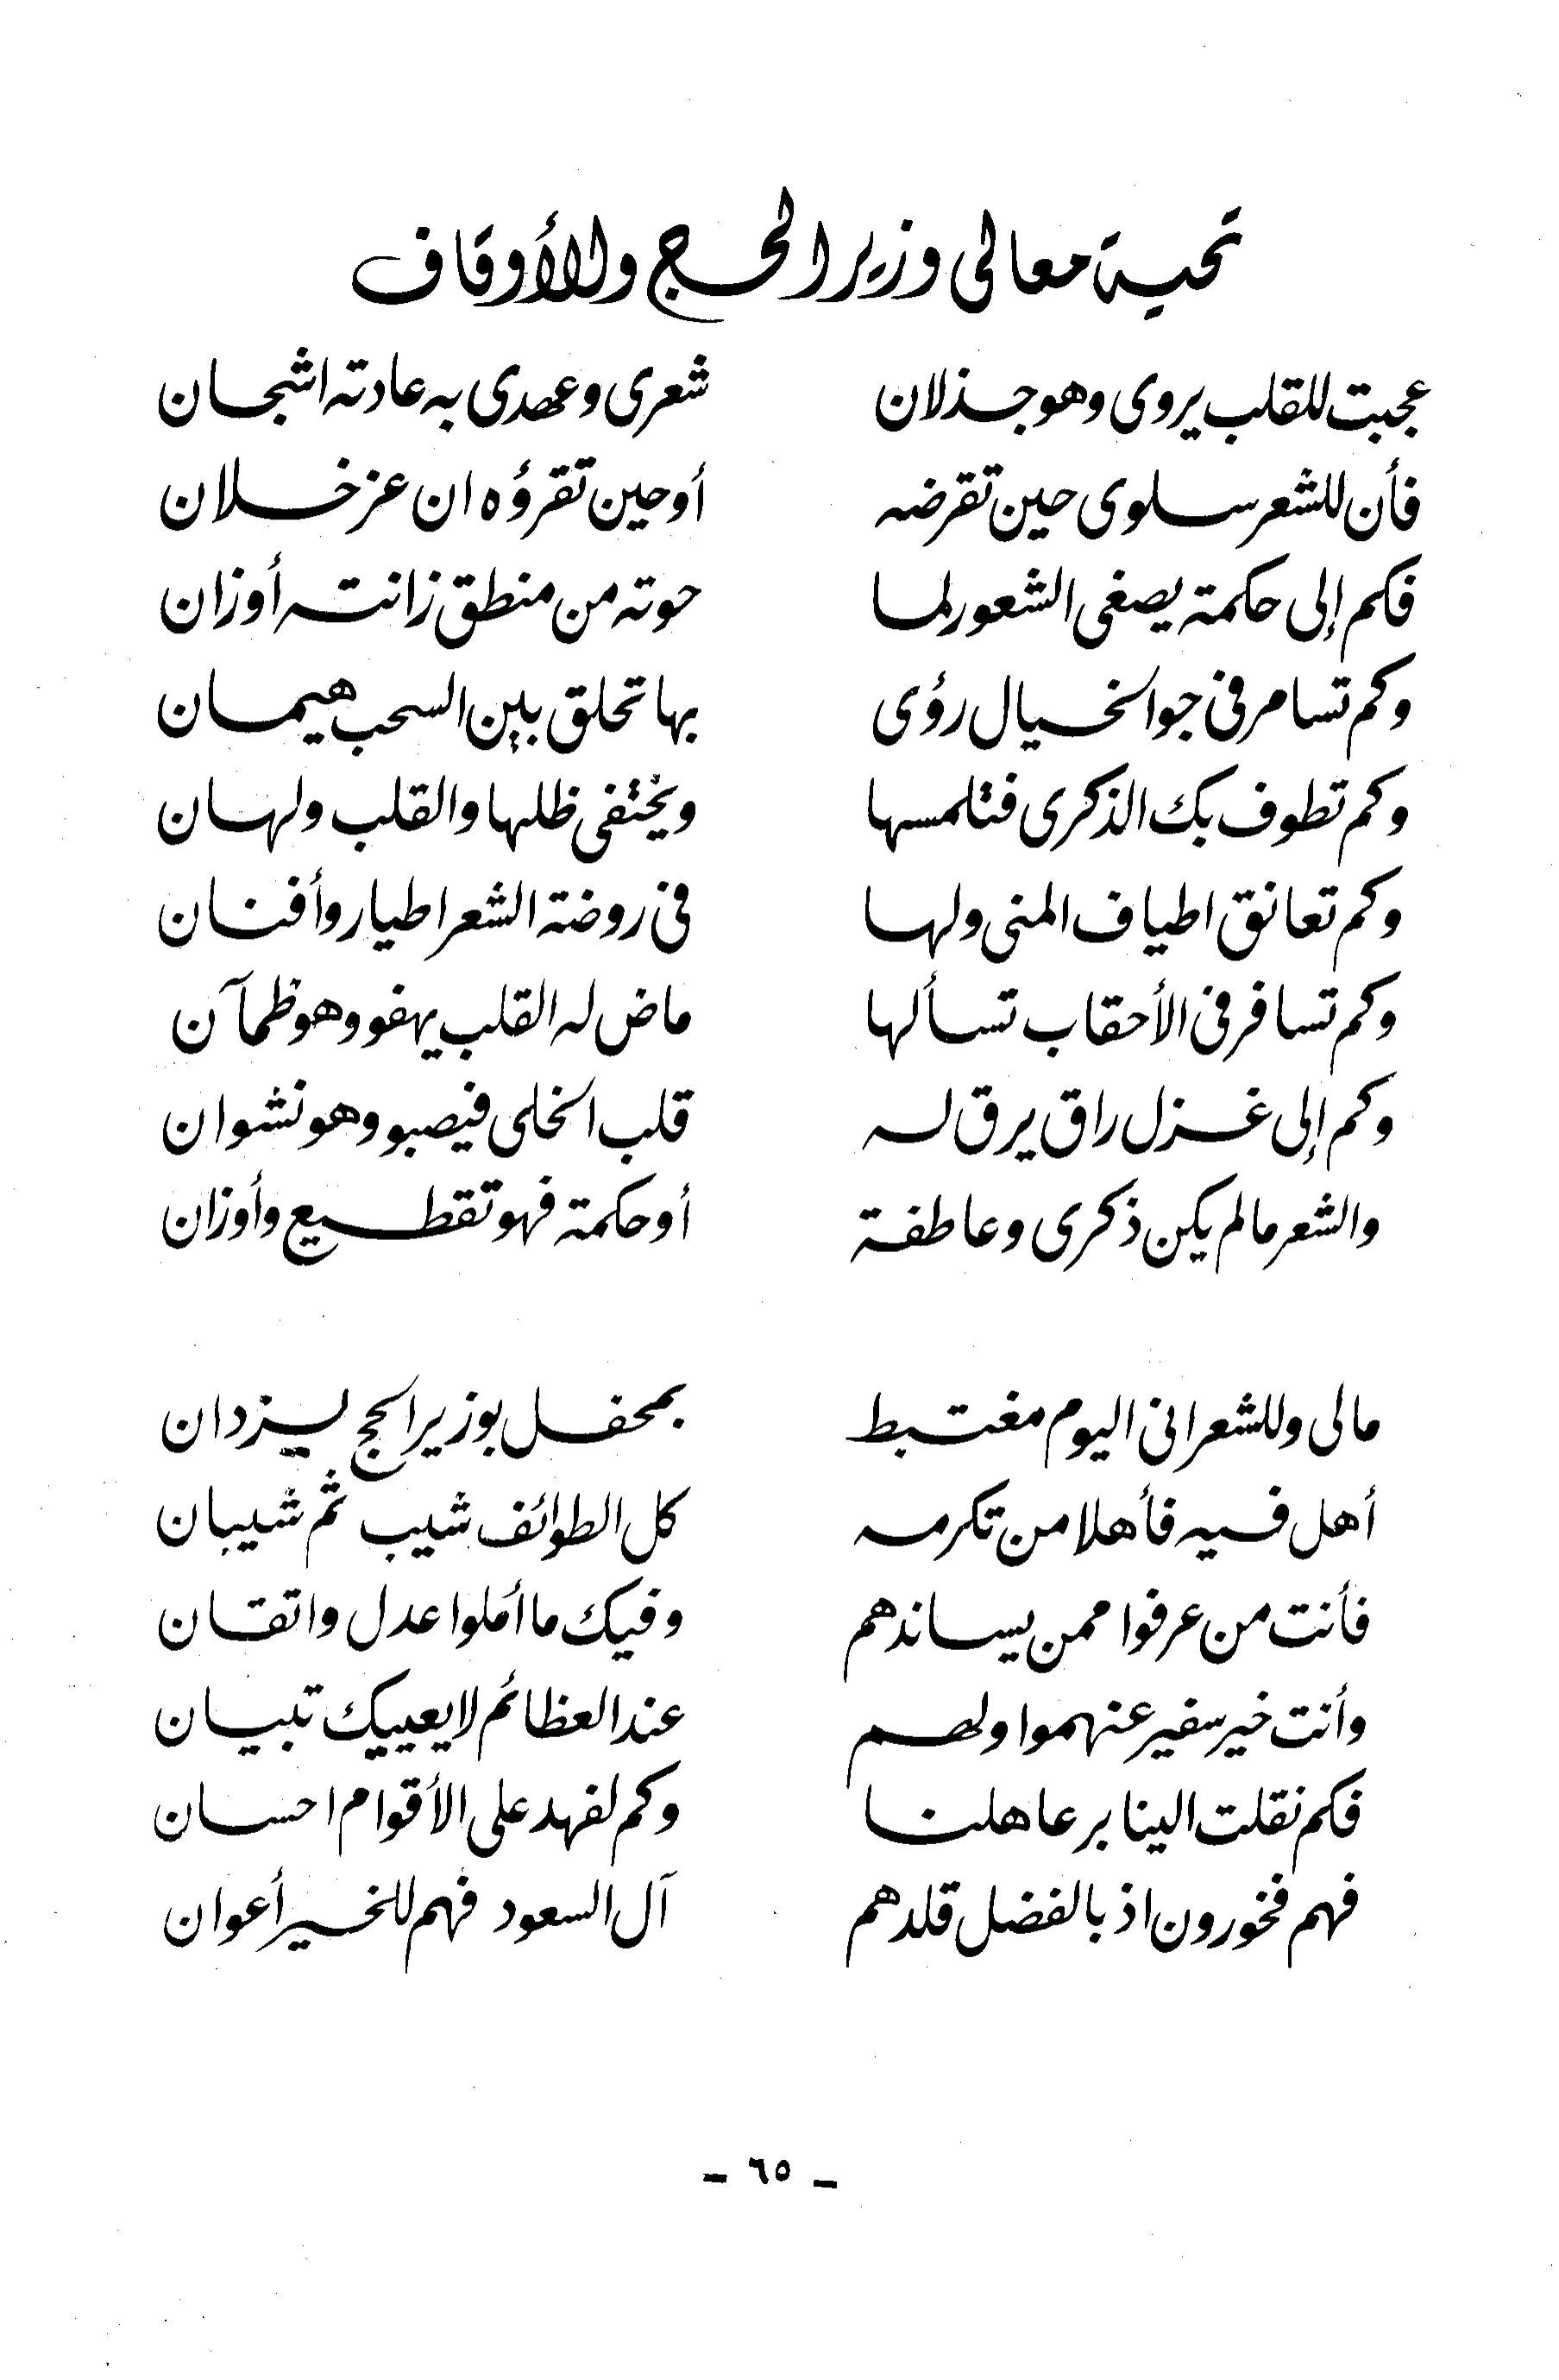 تحية معالى وزير الحج والأوقاف
عجبت للقلب يروى وهو جذلان شعرى وعهدى به عادته اشجان
فأن للشعر سلوى حين تقرضه أو حين تقرؤه ان عز خلان
فكم إلى حكمة يصغى الشعور لما حوته من منطق زانته أوزان
وكم تسامر فى جو الخيال رؤى بها تحلق بين السحب هيمان
وكم تطوف بك الذكرى فتلمسها ويختفى ظلها والقلب ولهان
وكم تعانق اطياف المنى ولها فى روضة الشعر اطيار وأفنان
وكم تسافر فى الأحقاب تسألها ماض له القلب يهفو وهو ظمآن
وكم إلى غزل راق يرق له قلب الخلى فيصبو وهو نشوان
والشعر مالم يكن ذكرى وعاطفة أو حكمة فهو تقطيع وأوزان
مالى وللشعر انى اليوم مغتبط بمحفل بوزير الحج يزدان
أهل فيه فأهلا من تكرمه كل الطوائف شيب ثم شيبان
فأنت من عرفوا ممن يساندهم وفيك ما أملوا عدل واتقان
وأنت خير سفير عنهموا ولهم عند العظائم لا يعييك تبيان
فكم نقلت الينا بر عاهلنا وكم لفهد على الأقوام احسان
فهم فخورون اذ بالفضل قلدهم آل السعود فهم للخير أعوان
- ٦٥ -